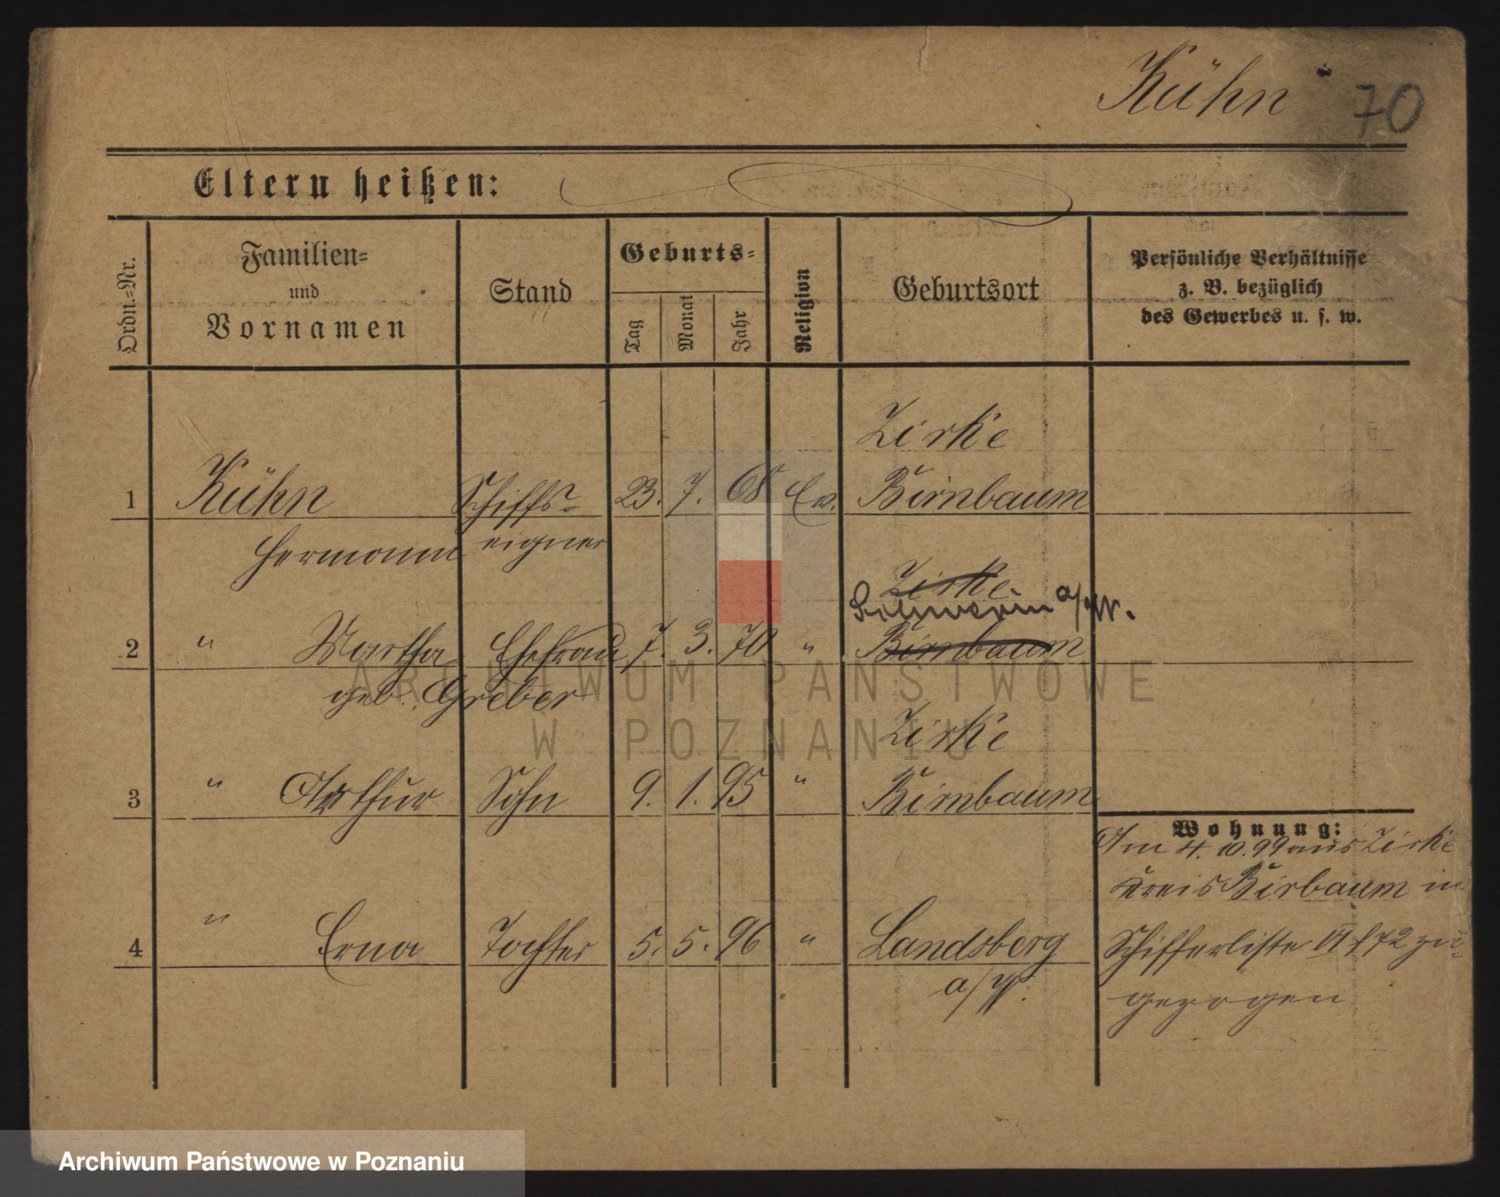 Kühn 70
Eltern heißen:
Ordn.-Nr.
Familien-
und
Vornamen
Stand
Geburts-
Tag
Monat
Jahr
Religion
Geburtsort
Persönliche Verhältnisse
z. B. bezüglich
des Gewerbes u. s. w.
Zirke
1 Kühn Schiffs- 23. 7. 68 Ev. Birnbaum
Hermann eigner
Zirke
Schwerin a/W.
2 " Martha Ehefrau 7. 3. 70 " Birnbaum
geb. Greber
Zirke
3 " Arthur Sohn 9. 1. 95 " Birnbaum
Wohnung:
Am 4. 10. 99 aus Zirke
Kreis Birbaum in
4 " Erna Tochter 5. 5. 96 " Landsberg
a/W.
Schifferliste 172 zu-
gezogen
ARCHIWUM PAŃSTWOWE
W POZNANIU
Archiwum Państwowe w Poznaniu